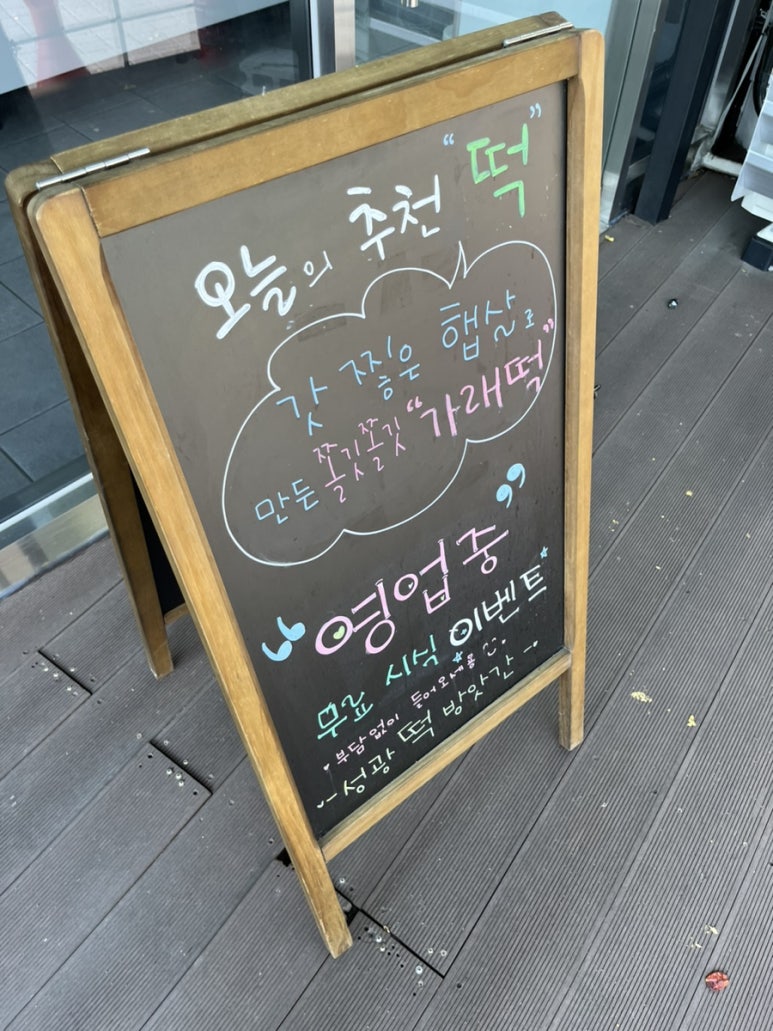 오늘의 추천 “떡”
갓 찧은 햅쌀로
만든 쫄깃쫄깃 “가래떡”
“영업중”
무료 시식 이벤트
부담없이 들어오세용 ^^
-성광 떡 방앗간-